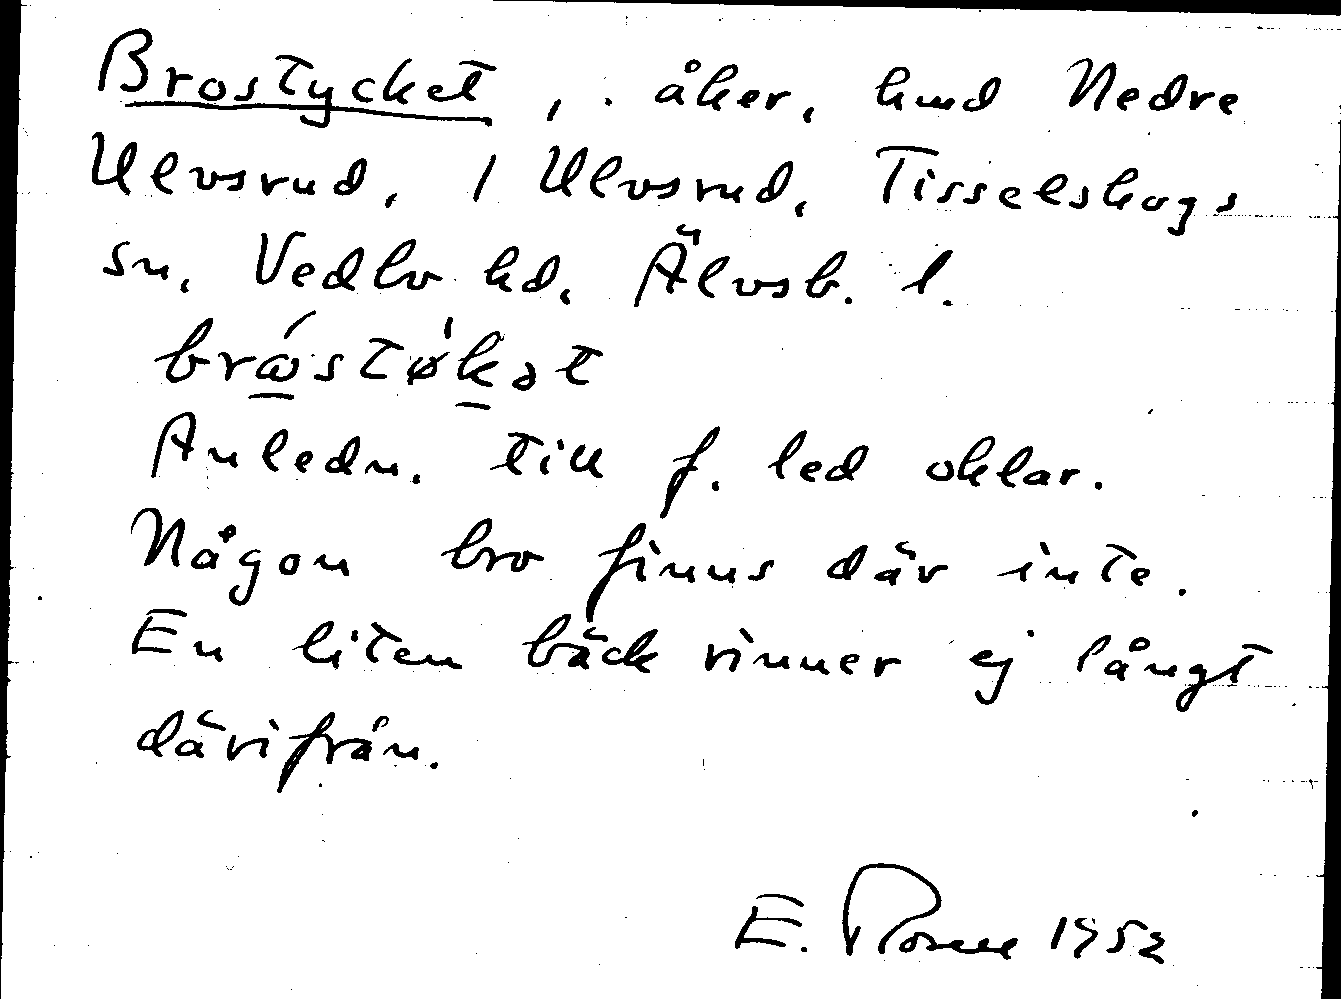 Brostycket, åker, hmd Nedre
Ulvsrud, 1 Ulvsrud, Tisselskogs
sn, Vedbo hd, Älvsb. l.
brǿstøkət
Anledn. till f. led oklar.
Någon bro finns där inte.
En liten bäck rinner ej långt
därifrån.
E. 1952